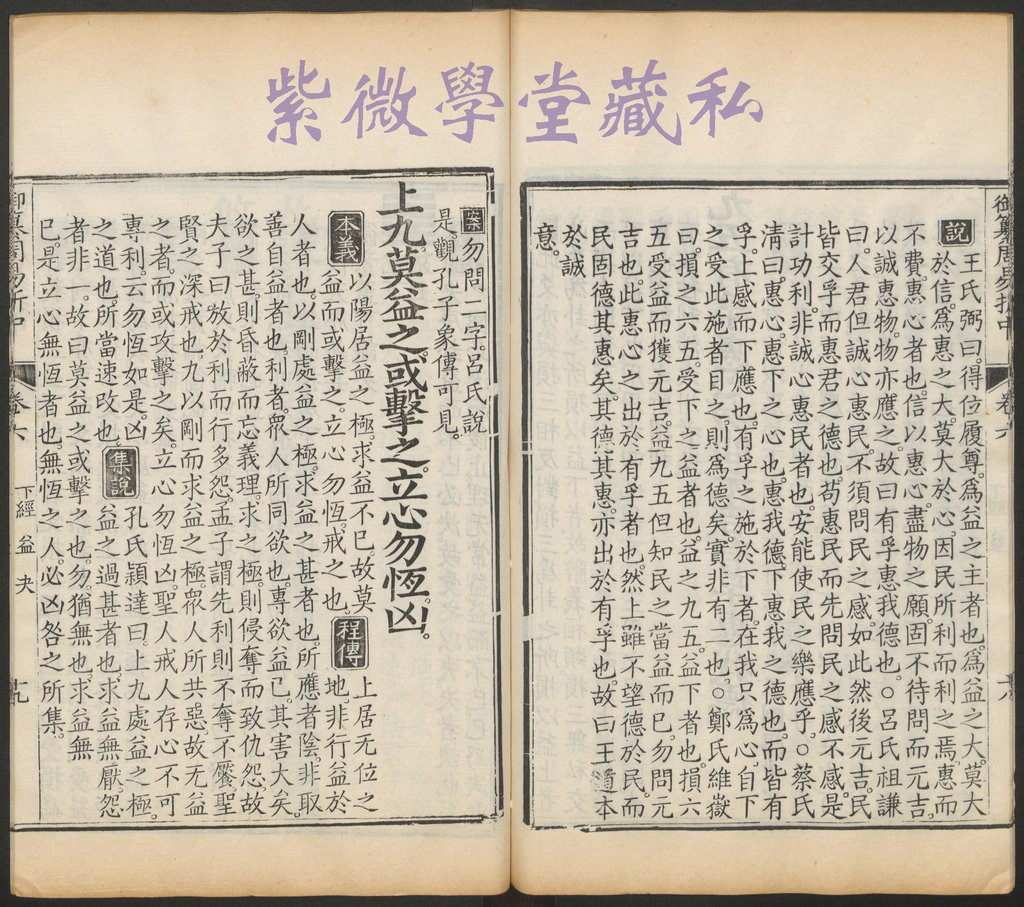 紫微學堂藏私
御纂周易折中 卷六
說 王氏弼曰。得位履尊。為益之主者也。為益之大。莫大
於信。為惠之大。莫大於心。因民所利而利之焉。惠而
不費。惠心者也。信以惠心。盡物之願。固不待問而元吉。
以誠惠物。物亦應之。故曰有孚惠我德也。○呂氏祖謙
曰。人君但誠心惠民。不須問民之感。如此然後元吉。民
皆交孚而惠君之德也。苟惠民而先問民之感不感。是
計功利。非誠心惠民者也。安能使民之樂應乎。○蔡氏
清曰。惠心。惠下之心也。惠我德。下惠我之德也。而皆有
孚。上感而下應也。有孚之施於下者。在我只為心。自下
之受此施者目之。則為德矣。實非有二也。○鄭氏維嶽
曰。損之六五。受下之益者也。益之九五。益下者也。損六
五受益而獲元吉。益九五但知民之當益而已。勿問元
吉也。此惠心之出於有孚者也。然上雖不望德於民。而
民固德其惠矣。其德其惠。亦出於有孚也。故曰王道本
於誠
意。
案 勿問二字。呂氏說
是。觀孔子象傳可見。
上九。莫益之。或擊之。立心勿恆。凶。
本義 以陽居益之極。求益不已。故莫
益而或擊之。立心勿恆。戒之也。 程傳 上居无位之
地。非行益於
人者也。以剛處益之極。求益之甚者也。所應者陰。非取
善自益者也。利者。眾人所同欲也。專欲益己。其害大矣。
欲之甚。則昏蔽而忘義理。求之極。則侵奪而致仇怨。故
夫子曰。放於利而行多怨。孟子謂先利則不奪不饜。聖
賢之深戒也。九以剛而求益之極。眾人所共惡。故无益
之者。而或攻擊之矣。立心勿恆凶。聖人戒人存心不可
專利。云勿恆如是。凶
之道也。所當速改也。 集說 孔氏穎達曰。上九處益之極。
益之過甚者也。求益無厭。怨
者非一。故曰莫益之或擊之也。勿。猶無也。求益無
已。是立心無恆者也。無恆之人。必凶咎之所集。
卷六 下經 益